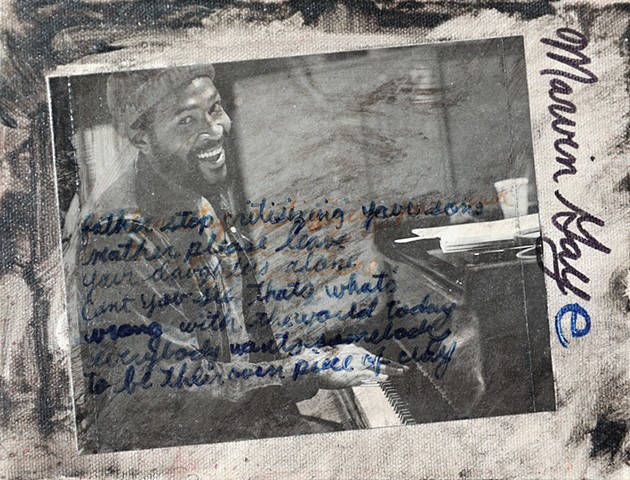 father stop critisizing your sons
mother please leave
your daughters alone
Cant you see thats whats
wrong with the world today
everybody wants somebody
to be their own piece of clay
Marvin Gaye